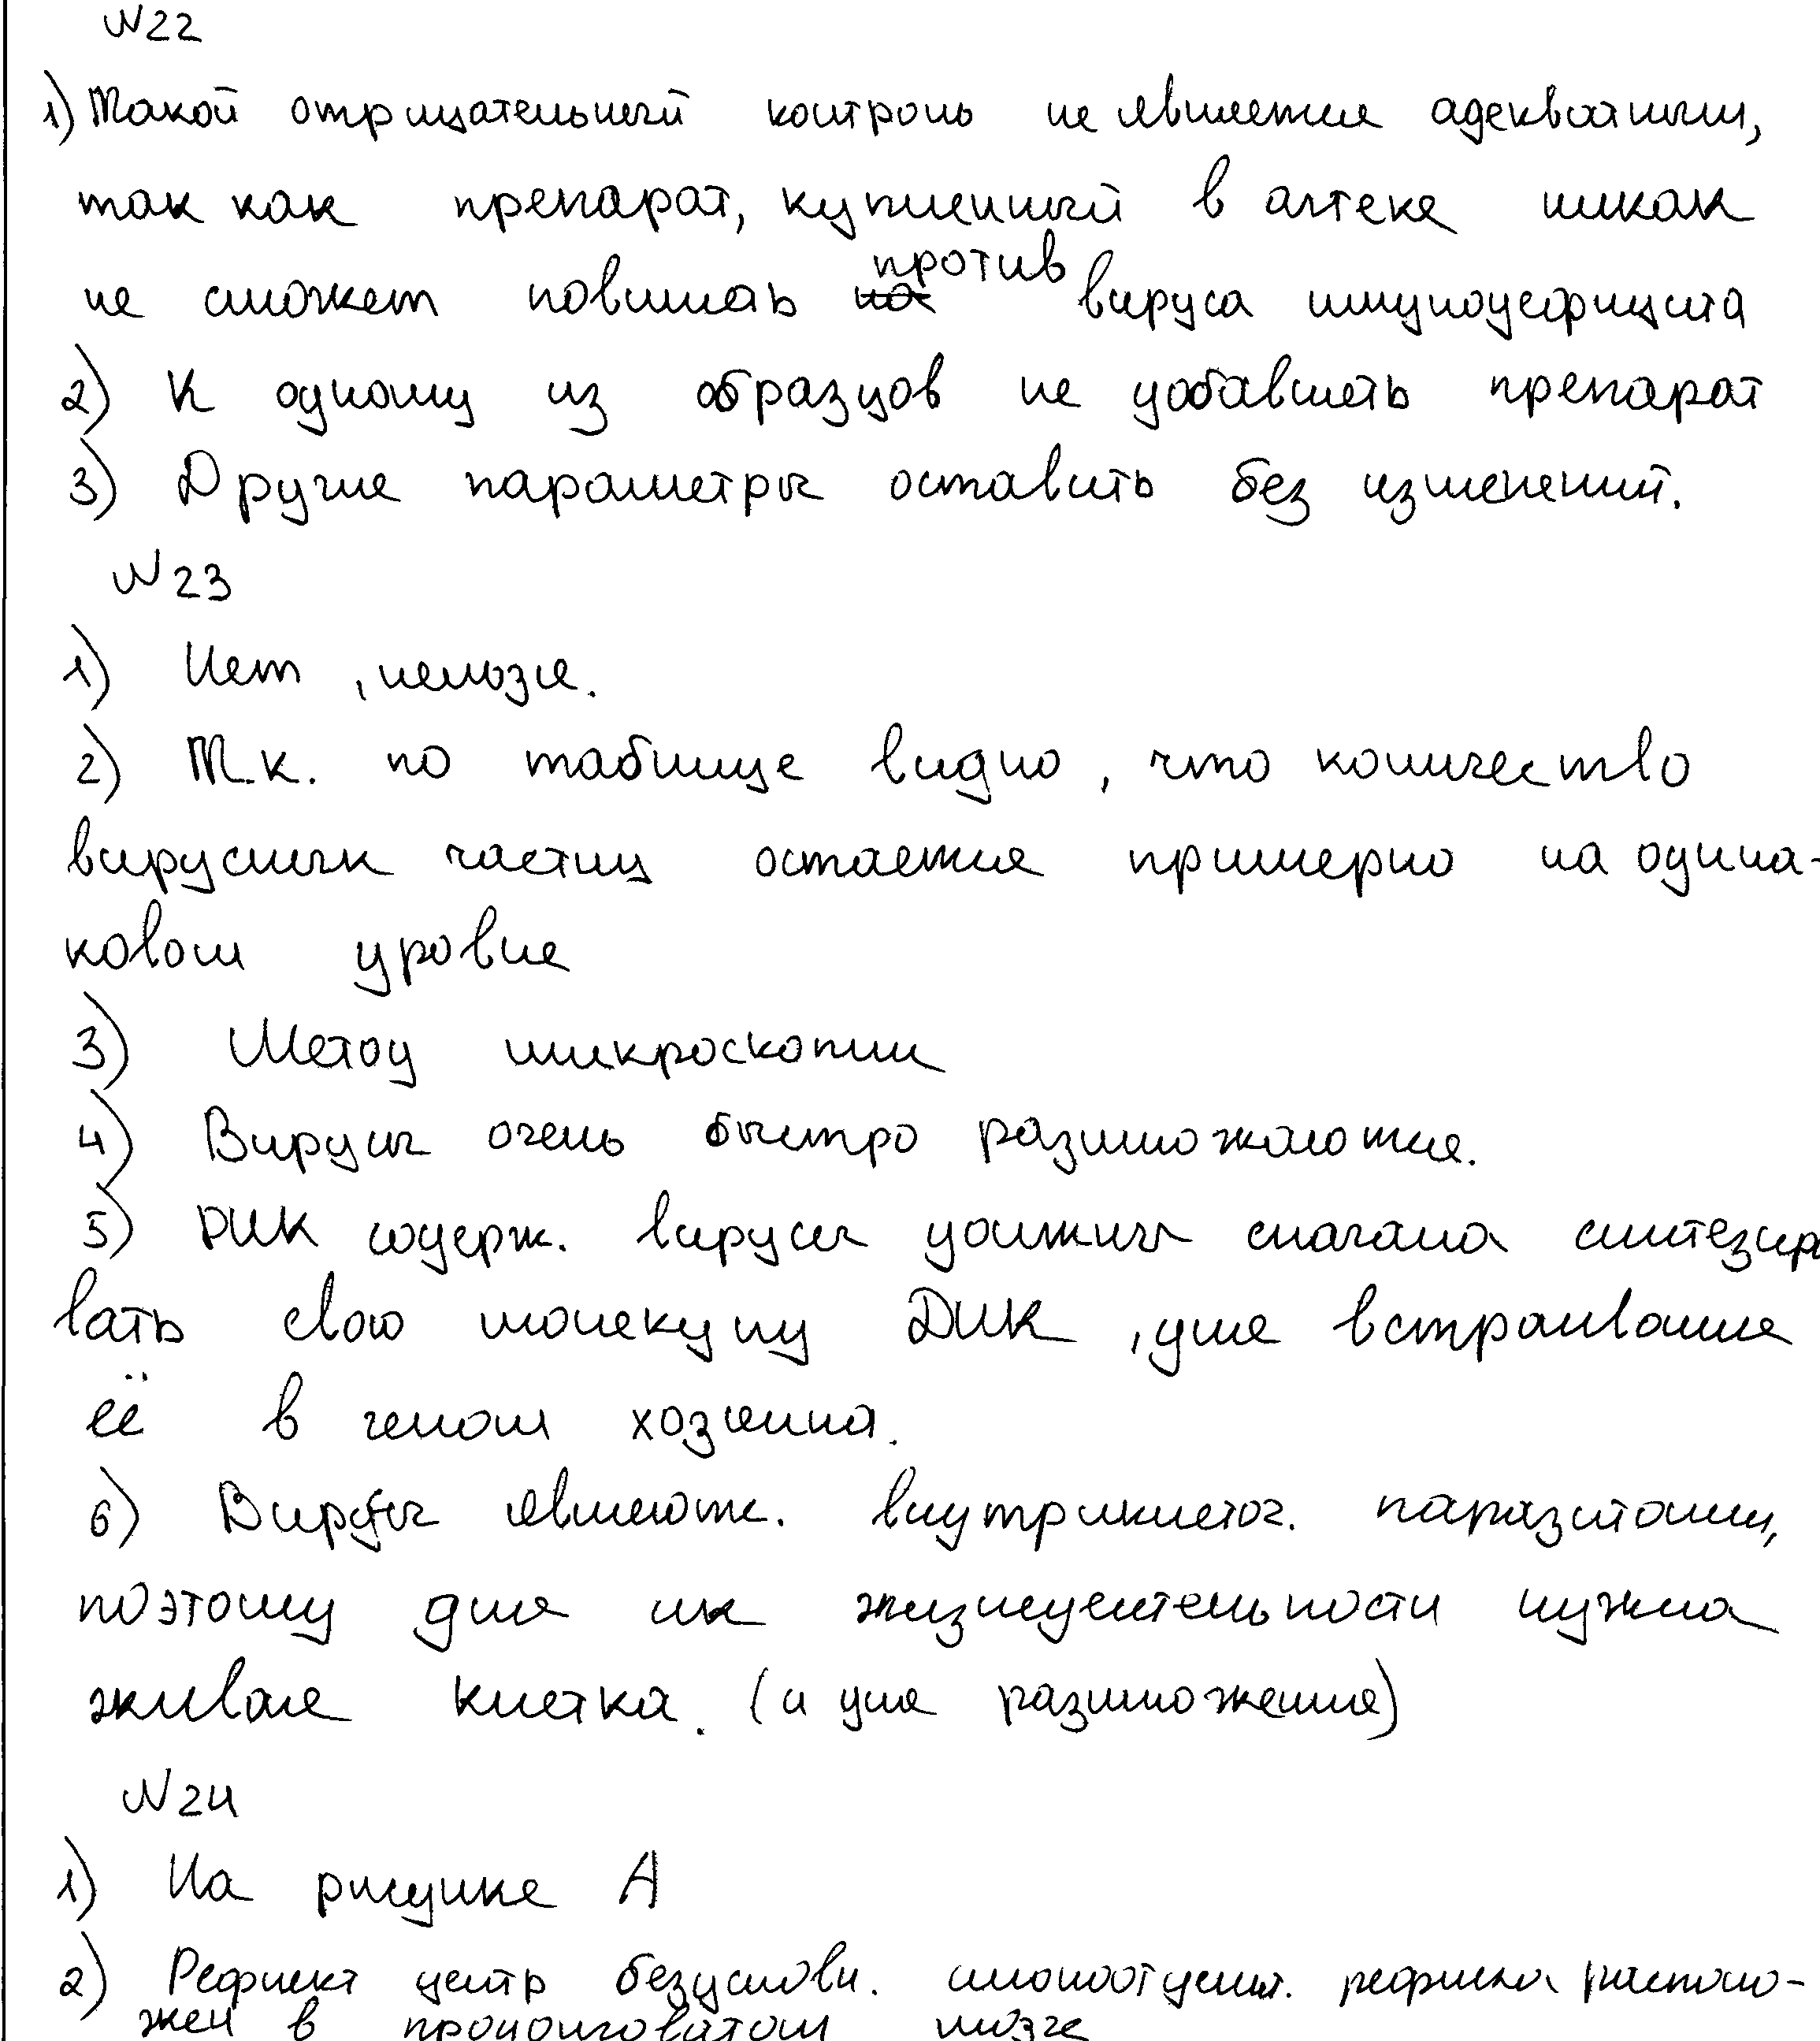 №22
1) Такой отрицательный контроль не является адекватным,
так как препарат, купленный в аптеке никак
не сможет повлиять на против вируса иммунодефицита
2) К одному из образцов не добавлять препарат
3) Другие параметры оставить без изменений.
№23
1) Нет, нельзя.
2) Т.к. по таблице видно, что количество
вирусных частиц остается примерно на одина-
ковом уровне
3) Метод микроскопии
4) Вирусы очень быстро размножаются.
5) РНК содерж. вирусы должны сначала синтезиро
вать свою молекулу ДНК, для встраивания
её в геном хозяина.
6) Вирусы являютс. внутриклеточ. паразитами,
поэтому для их жизнедеятельности нужна
живая клетка. (и для размножения)
№24
1) На рисунке А
2) Рефлект центр безусловн. слюноотделит. рефлекса располо-
жен в продолговатом мозге